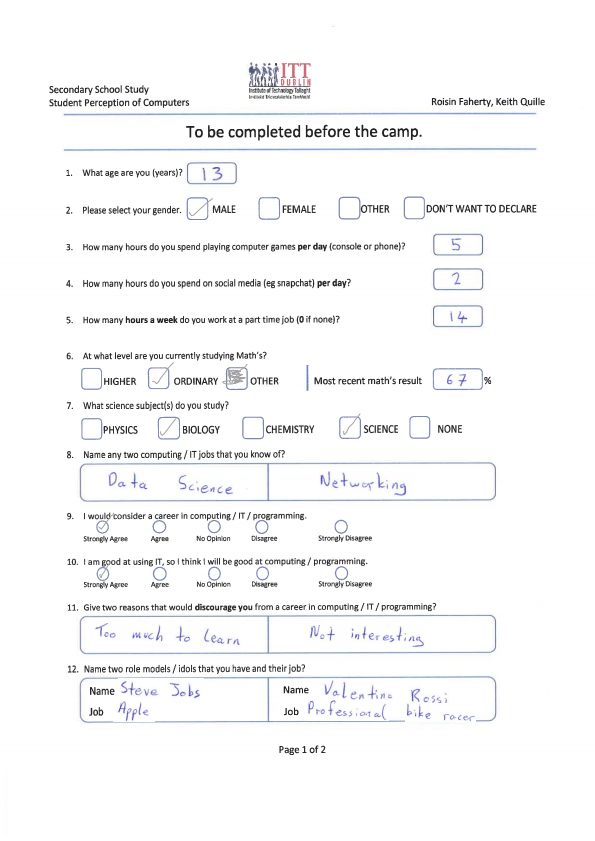 ITT
DUBLIN
Institute of Technology Tallaght
Secondary School Study
Student Perception of Computers
Roisin Faherty, Keith Quille
To be completed before the camp.
1. What age are you (years)? 13
2. Please select your gender. MALE FEMALE OTHER DON'T WANT TO DECLARE
3. How many hours do you spend playing computer games per day (console or phone)? 5
4. How many hours do you spend on social media (eg snapchat) per day? 2
5. How many hours a week do you work at a part time job (0 if none)? 14
6. At what level are you currently studying Math's?
HIGHER ORDINARY OTHER Most recent math's result 67 %
7. What science subject(s) do you study?
PHYSICS BIOLOGY CHEMISTRY SCIENCE NONE
8. Name any two computing / IT jobs that you know of?
Data Science Networking
9. I would consider a career in computing / IT / programming.
Strongly Agree Agree No Opinion Disagree Strongly Disagree
10. I am good at using IT, so I think I will be good at computing / programming.
Strongly Agree Agree No Opinion Disagree Strongly Disagree
11. Give two reasons that would discourage you from a career in computing / IT / programming?
Too much to learn Not interesting
12. Name two role models / idols that you have and their job?
Name Steve Jobs Name Valentino Rossi
Job Apple Job Professional bike racer
Page 1 of 2